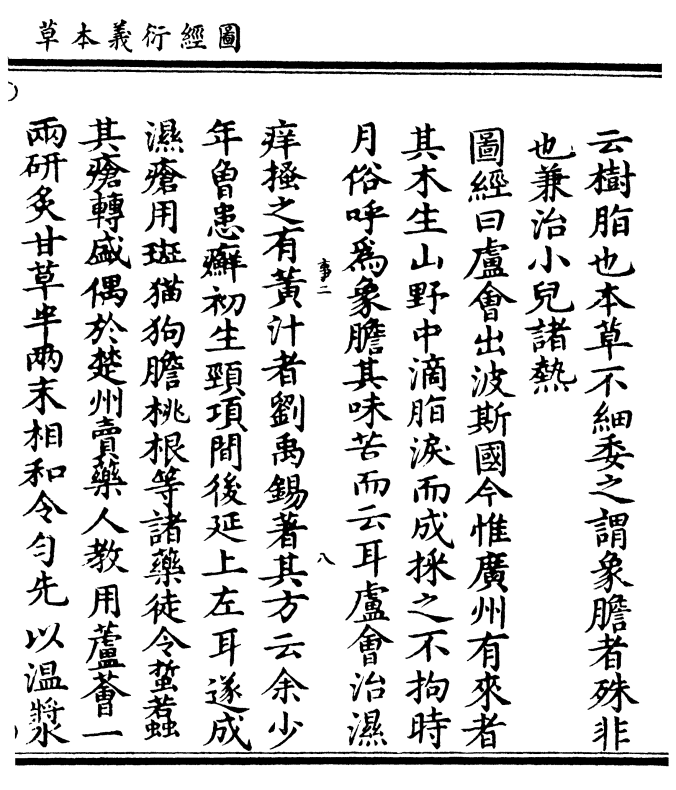 圖經衍義本草
云樹脂也本草不細委之謂象膽者殊非
也兼治小兒諸熱
圖經曰盧會出波斯國今惟廣州有來者
其木生山野中滴脂淚而成採之不拘時
月俗呼爲象膽其味苦而云耳盧會治濕
事二
八
痒搔之有黃汁者劉禹錫著其方云余少
年曾患癬初生頸項間後延上左耳遂成
濕瘡用斑猫狗膽桃根等諸藥徒令蜇蠚
其瘡轉盛偶於楚州賣藥人教用蘆薈一
兩研炙甘草半兩末相和令勻先以温漿水